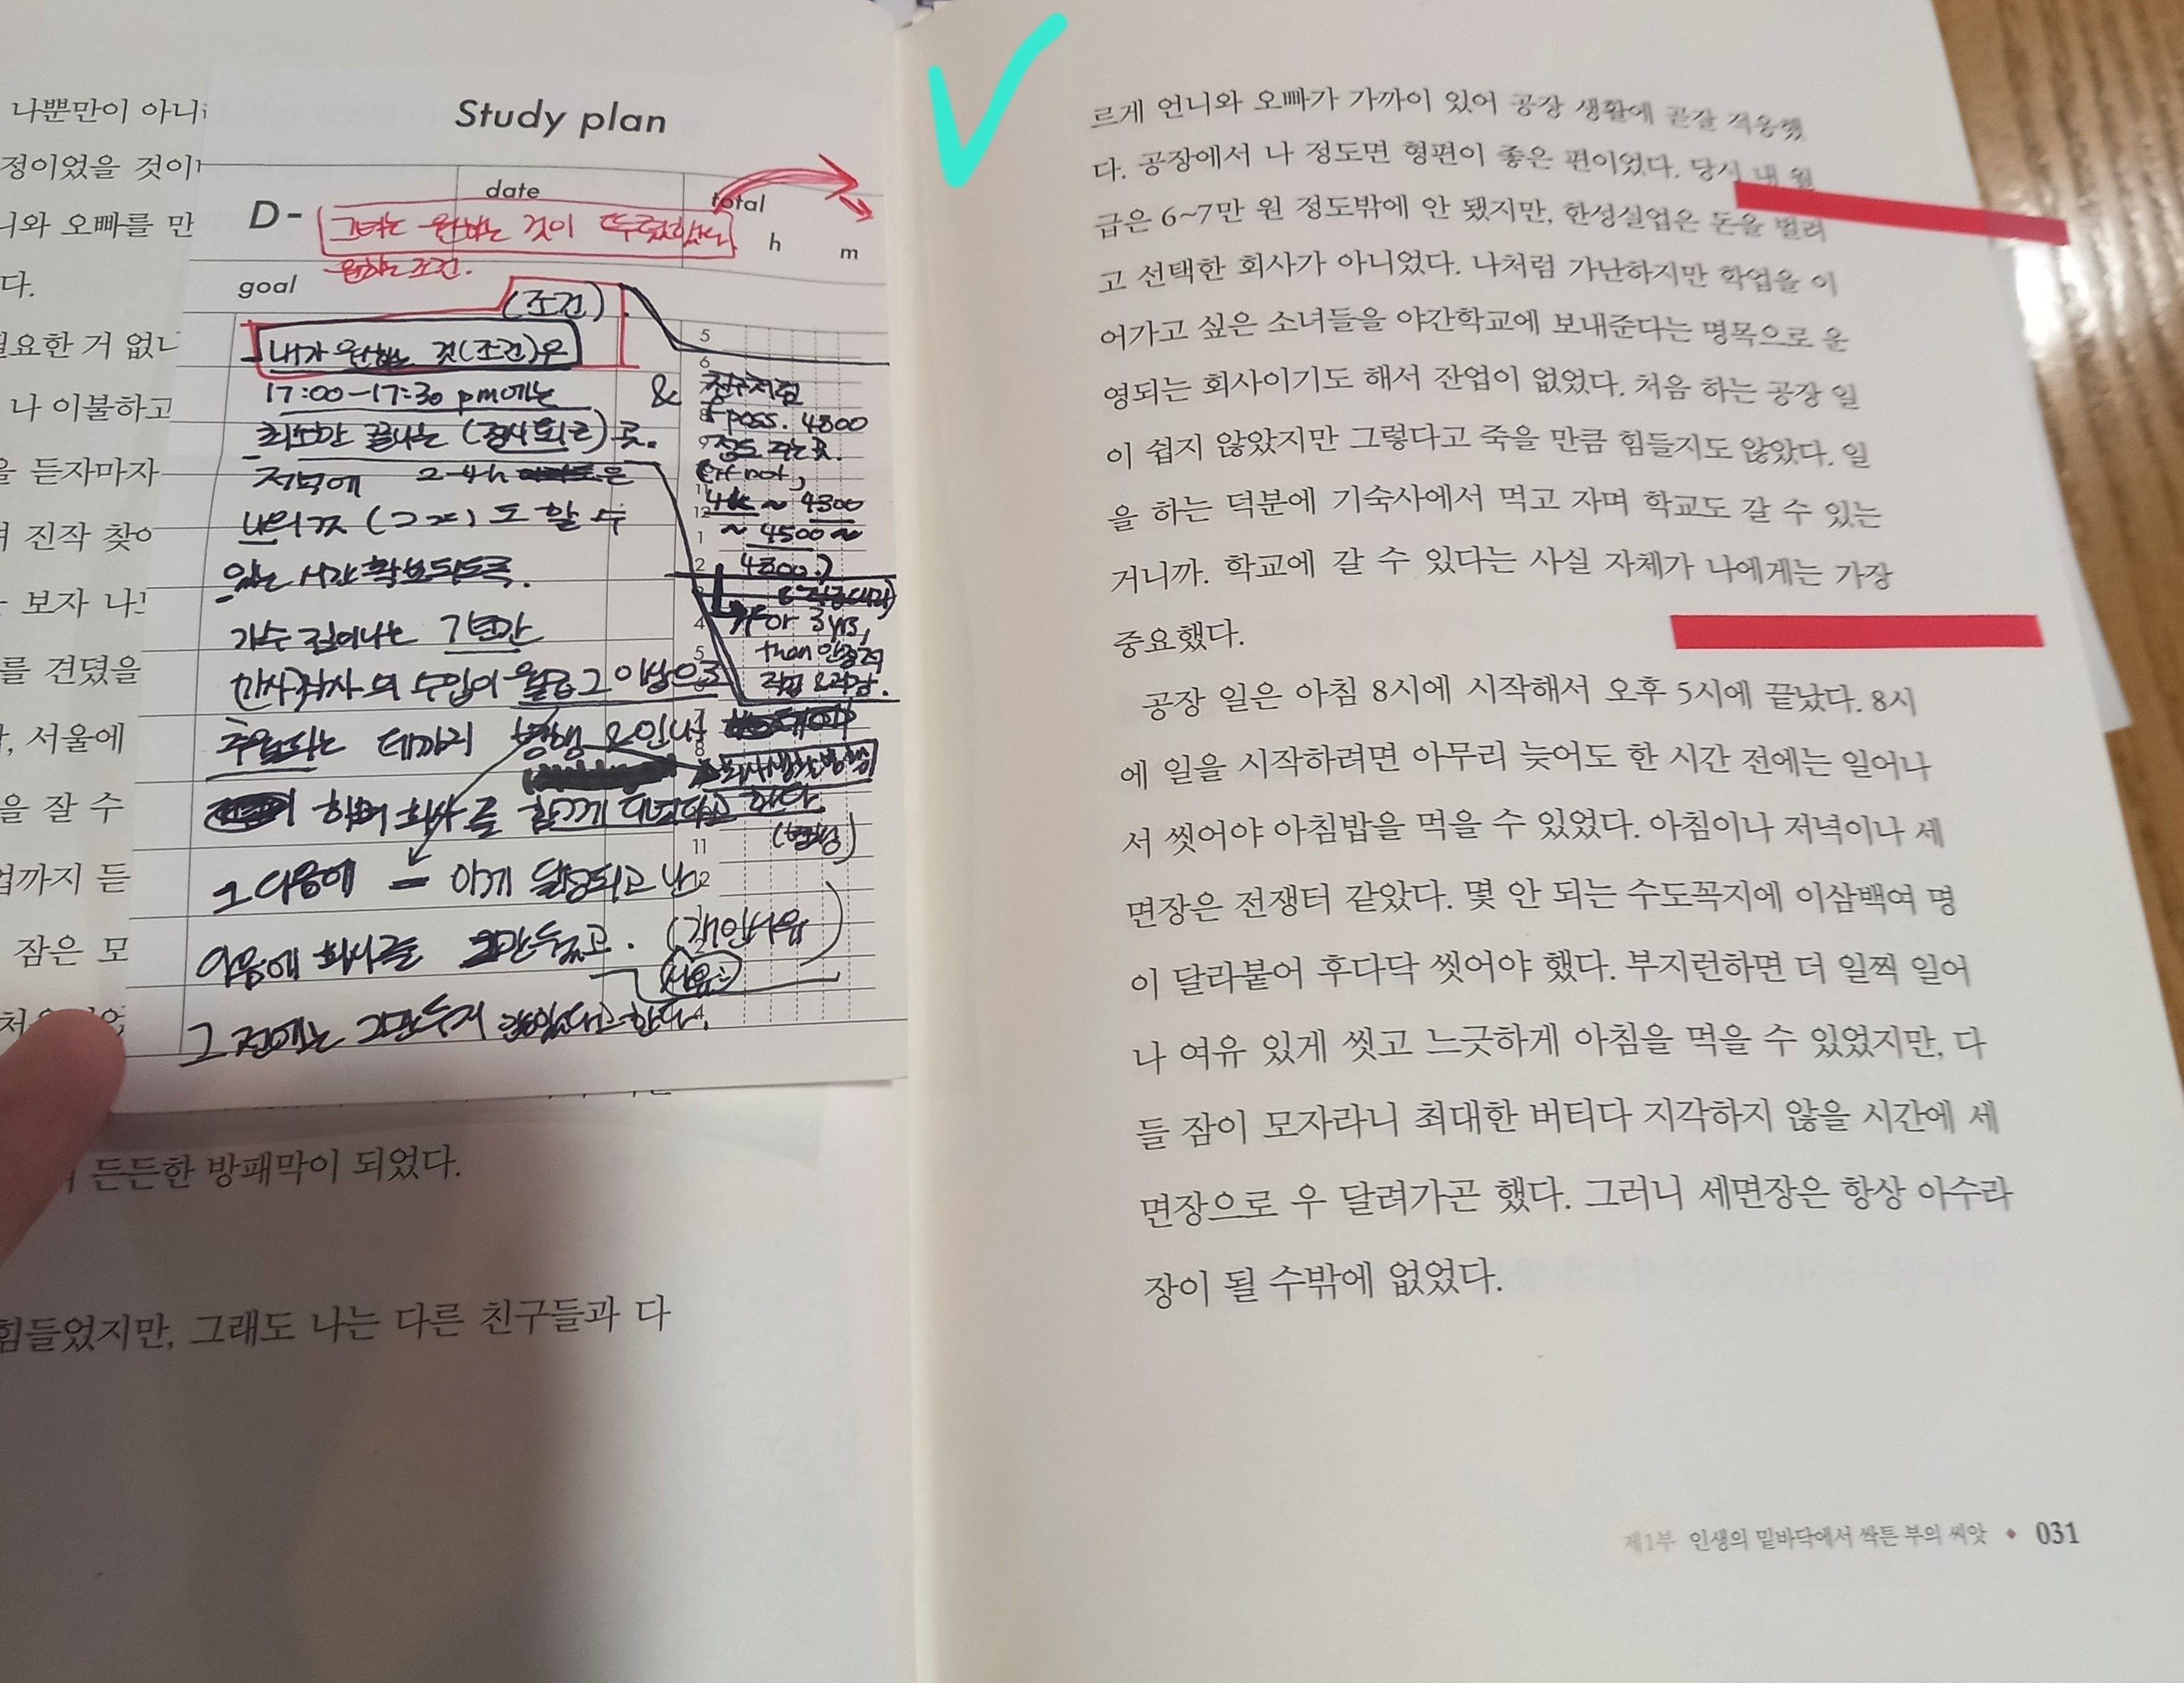 나뿐만이 아니
정이었을 것이
니와 오빠를 만
다.
필요한 거 없니
나 이불하고
을 듣자마자
진작 찾아
보자 나
를 견뎠을
서울에
을 잘 수
업까지 듣
잠은 모
든든한 방패막이 되었다.
힘들었지만, 그래도 나는 다른 친구들과 다
Study plan
date
total
D-
그녀는 원하는 것이 뚜렷했다
h
m
원하는 조건.
goal
(조건)
내가 원하는 것(조건)은
17:00-17:30 pm에는
최소한 끝나는 (정시퇴근) 곳.
저녁에 2-4h
나의 것 도 할 수
있는 시간 확보되도록.
가수 김미나는 7년간
수입이 월급 그 이상으로
추월하는 데까지 병행
하며 회사를 함께 다녔다고 한다.
그 다음에 이게 달성되고 난
다음에 회사를 그만두었고. (개인사업
그 전에는 그만두지 않았다고 한다.
5
6
&
poss. 4800
정도 주는 곳.
(if not,
4k ~ 4300
~ 4500 ~
4800.)
for 3 yrs,
than 안정적
11
르게 언니와 오빠가 가까이 있어 공장 생활에 곧잘 적응했
다. 공장에서 나 정도면 형편이 좋은 편이었다. 당시 내 월
급은 6~7만 원 정도밖에 안 됐지만, 한성실업은 돈을 벌려
고 선택한 회사가 아니었다. 나처럼 가난하지만 학업을 이
어가고 싶은 소녀들을 야간학교에 보내준다는 명목으로 운
영되는 회사이기도 해서 잔업이 없었다. 처음 하는 공장 일
이 쉽지 않았지만 그렇다고 죽을 만큼 힘들지도 않았다. 일
을 하는 덕분에 기숙사에서 먹고 자며 학교도 갈 수 있는
거니까. 학교에 갈 수 있다는 사실 자체가 나에게는 가장
중요했다.
공장 일은 아침 8시에 시작해서 오후 5시에 끝났다. 8시
에 일을 시작하려면 아무리 늦어도 한 시간 전에는 일어나
서 씻어야 아침밥을 먹을 수 있었다. 아침이나 저녁이나 세
면장은 전쟁터 같았다. 몇 안 되는 수도꼭지에 이삼백여 명
이 달라붙어 후다닥 씻어야 했다. 부지런하면 더 일찍 일어
나 여유 있게 씻고 느긋하게 아침을 먹을 수 있었지만, 다
들 잠이 모자라니 최대한 버티다 지각하지 않을 시간에 세
면장으로 우 달려가곤 했다. 그러니 세면장은 항상 아수라
장이 될 수밖에 없었다.
제1부 인생의 밑바닥에서 싹튼 부의 씨앗 ◆ 031